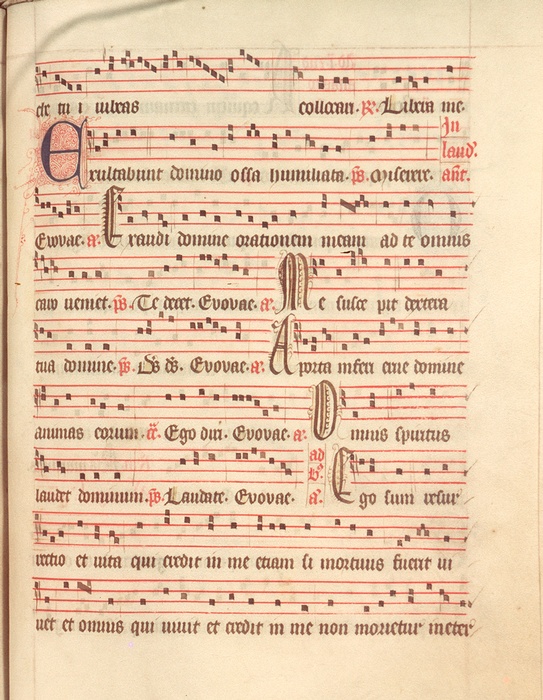 collocan. R. Libera me.
In
Exultabunt domino ossa humiliata. ps. Miserere. laud. ant.
Evovae. a. Exaudi domine orationem meam ad te omnis
caro veniet. ps. Te decet. Evovae. a. Me susce pit dextera
tua domine. ps. Ds ds. Evovae. a. A porta inferi erue domine
animas eorum. Ego dixi. Evovae. a. Omnis spiritus
laudet dominum. ps. Laudate. Evovae. ad a. Ego sum resur
rectio et vita qui credit in me etiam si mortuus fuerit vi
vet et omnis qui vivit et credit in me non morietur